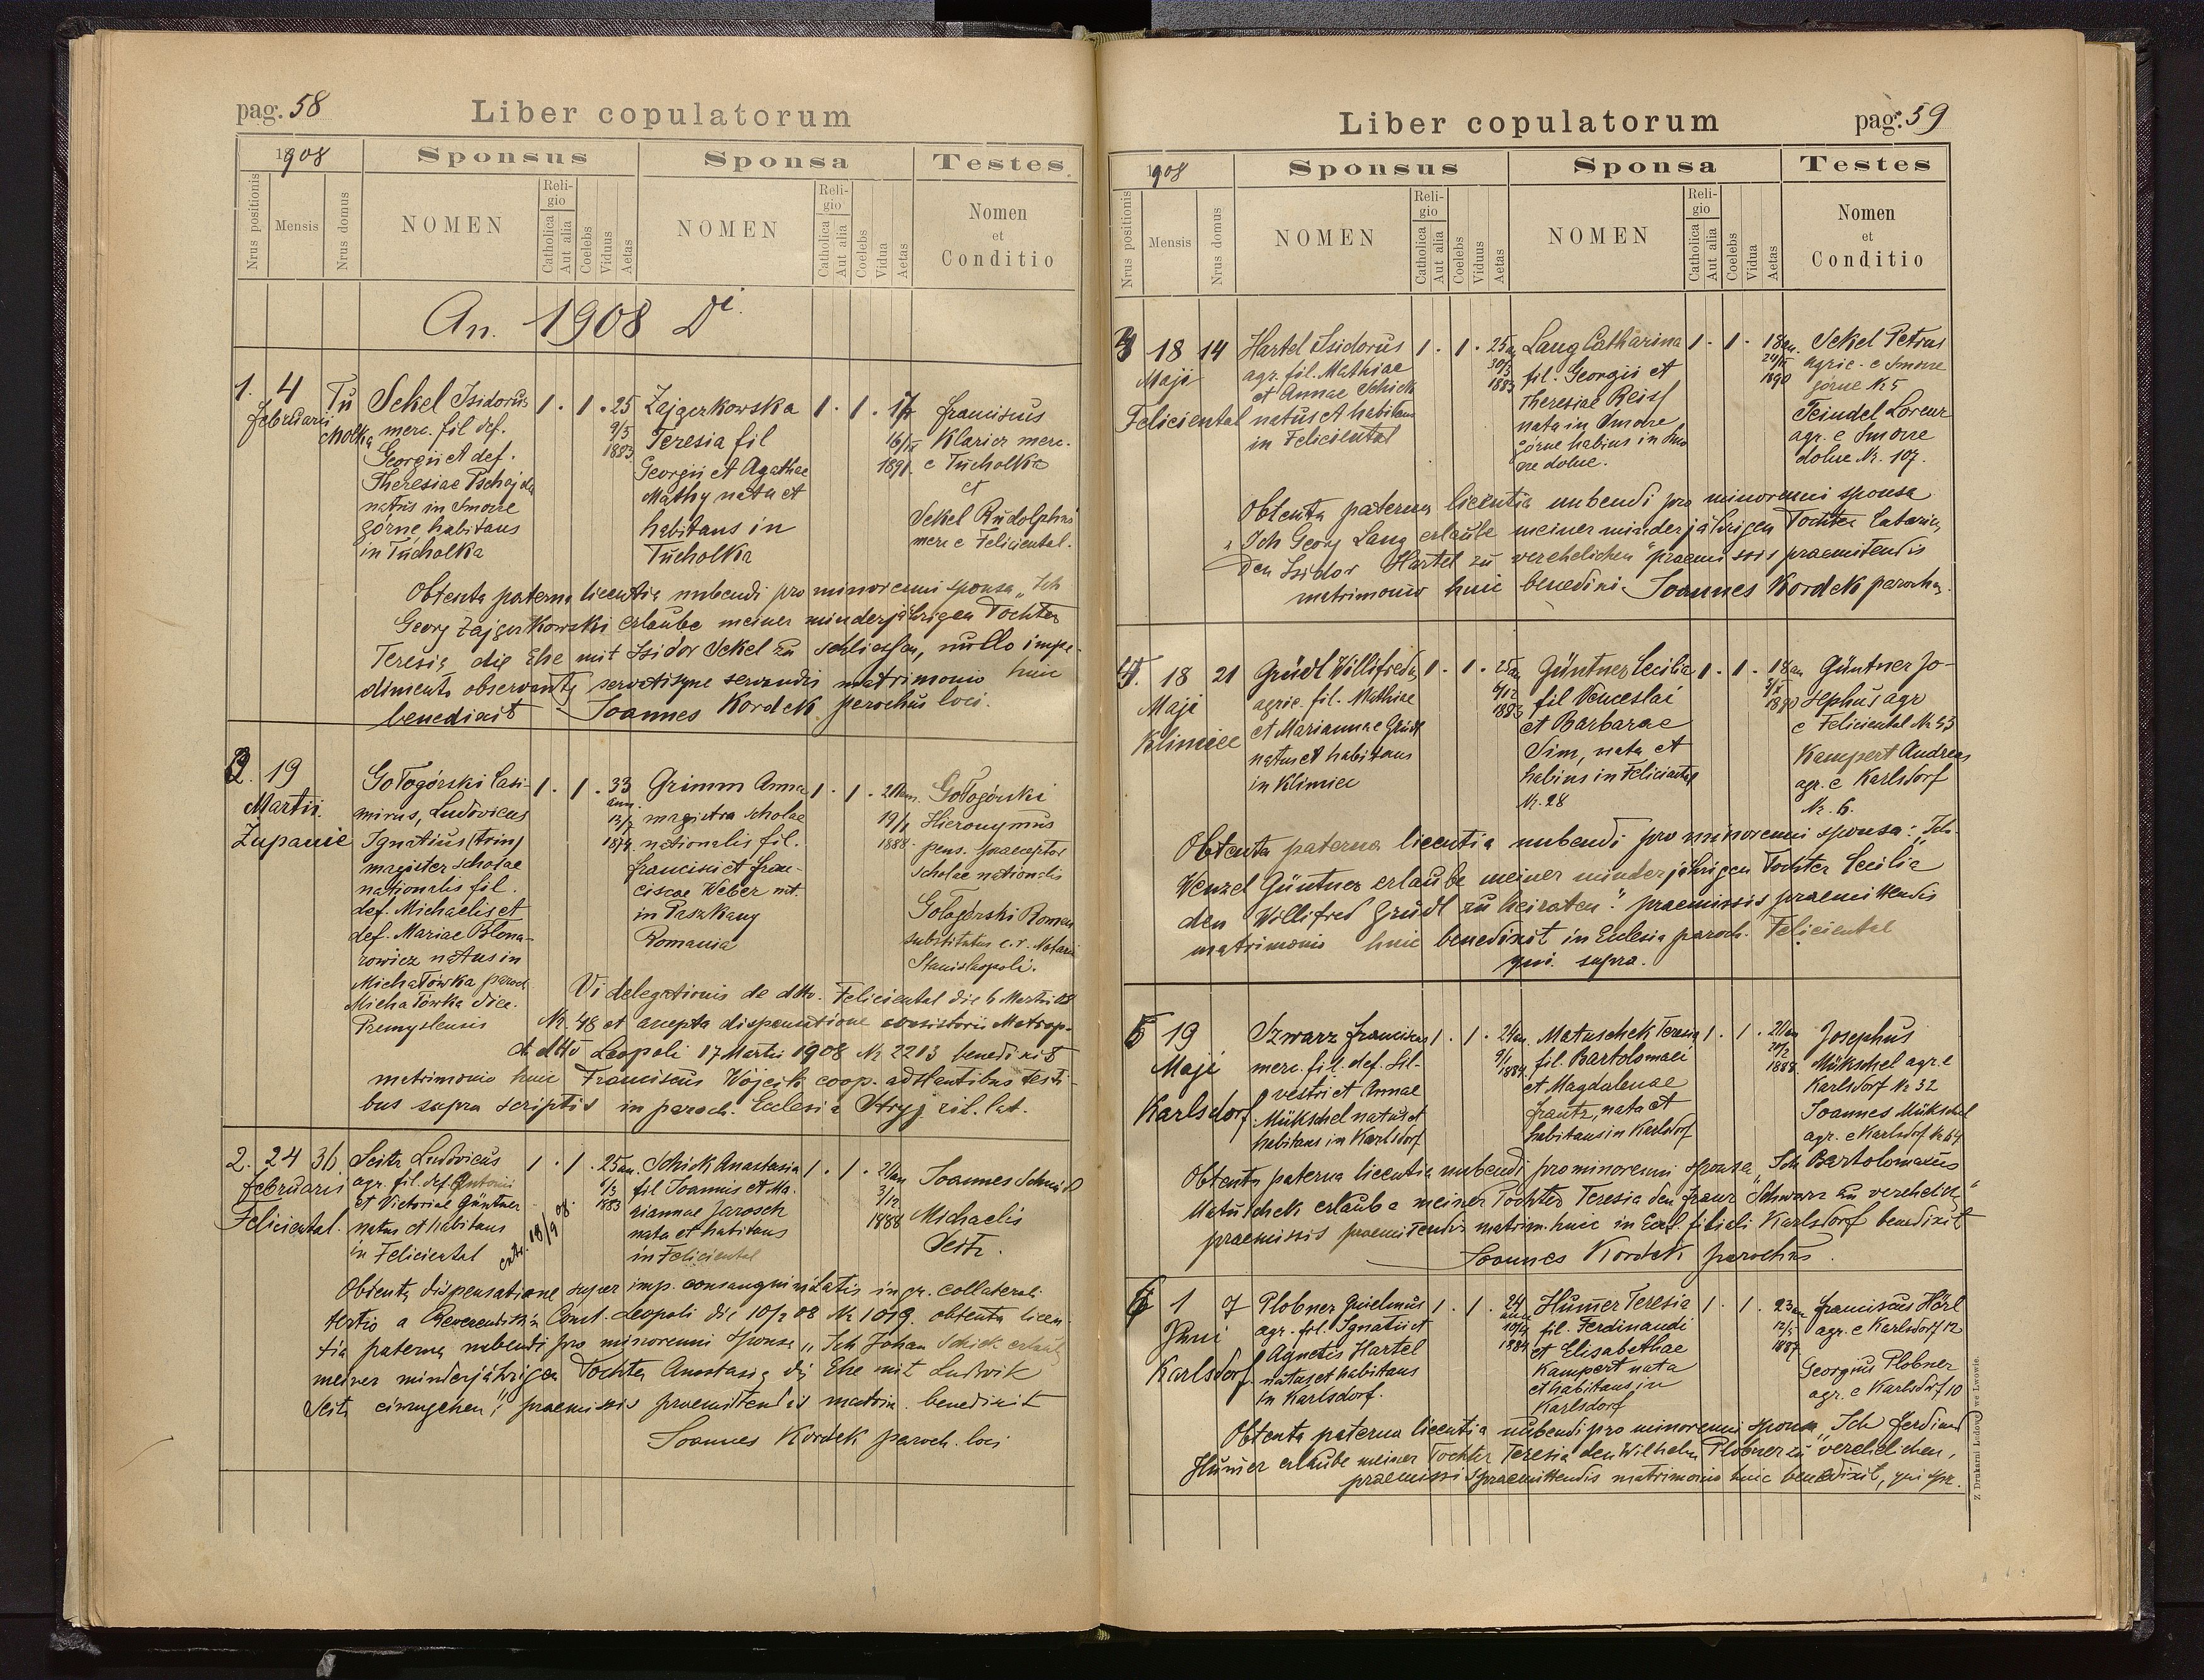 pag. 58
Liber copulatorum
1908
Sponsus
Sponsa
Testes
Nrus positionis
Mensis
Nrus domus
NOMEN
Religio
Catholica
Aut alia
Coelebs
Viduus
Aetas
NOMEN
Religio
Catholica
Aut alia
Coelebs
Vidua
Aetas
Nomen
et
Conditio
An. 1908 Di.
1. 4
Februarii
Tucholka
Sekel Isidorus
merc. fil def.
Georgii et def.
Theresiae Pschajda
natus in Smorze
górne, habitans
in Tucholka
1 . 1 . 25
9/5
1883
Zajgerkowska
Teresia fil
Georgii et Agathae
Mathy nata et
habitans in
Tucholka
1 . 1 . 17
16/IX
1891
Franciscus
Klarier merc.
e Tucholka
et
Sekel Rudolphus
merc e Feliciental.
Obtenta paterna licentia nubendi pro minorenni sponsa „Ich
Georg Zajgerkowski erlaube meiner minderjährigen Tochter
Teresia die Ehe mit Isidor Sekel zu schliessen, nullo impe-
dimento observato servatisque servandis matrimonio huic
benedixit Joannes Kordek parochus loci.
3. 19
Martii
Żupanie
Gołogórski Casi-
mirus, Ludovicus
Ignatius (trin)
magister scholae
nationalis fil.
def. Michaelis et
def. Mariae Błona-
rowicz natus in
Michałówka paroch.
Michałówka dioe.
Premyslensis
1 . 1 . 33
ann.
1874
Grimm Anna
magistra scholae
nationalis fil.
Francisci et Fran-
ciscae Weber nt.
in Paszkany
Romania
1 . 1 .
1888
Gołogórski
Hieronymus
pens. praeceptor
scholae nationalis
Gołogórski Roman
substitutus c.r. Notarii
Stanislaopoli.
Vi delegationis de dtto. Feliciental die 6 Martii 08
Nr. 48 et accepta dispensatione consistorii Metrop.
d. dtto Leopoli 17 Martii 1908 Nr 2213 benedixit
matrimonio huic Franciscus Wójcik coop. adstantibus testi-
bus supra scriptis in paroch. Ecclesia Stryj rit. lat.
2. 24 36
Februarii
Feliciental.
Seitz Ludovicus
agr. fil. def. Antonii
et Victoriae Güntner
natus et habitans
in Feliciental
1 . 1 . 25 an.
6/3
1883
Schick Anastasia
fil Joannis et Ma-
riannae Jarosch
nata et habitans
in Feliciental
1 . 1 .
3/12
1888
Joannes Schmid
Michaelis
Seitz.
Obtenta dispensatione super imp. consanguinitatis in gr. collaterali
tertio a Reverendiss. Const. Leopoli die 10/2 08 Nr 1019. obtenta licen-
tia paterna nubendi pro minorenni sponsa „Ich Johan Schick erlaube
meiner minderjährigen Tochter Anastasia die Ehe mit Ludwik
Seitz einzugehen", praemissis praemitendis matrim. benedixit
Joannes Kordek paroch. loci
Liber copulatorum
pag. 59
1908
Sponsus
Sponsa
Testes
Nrus positionis
Mensis
Nrus domus
NOMEN
Religio
Catholica
Aut alia
Coelebs
Viduus
Aetas
NOMEN
Religio
Catholica
Aut alia
Coelebs
Vidua
Aetas
Nomen
et
Conditio
18 14
Maji
Feliciental
Hartel Isidorus
agr. fil. Mathiae
et Annae Schick
natus et habitans
in Feliciental
1 . 1 . 25 a
30/3
1883
Lang Catharina
fil. Georgii et
Theresiae Reiss
nata in Smorze
górne habins in Smo
rze dolne.
1 . 1 . 18 an.
1890
Sekel Petrus
agric. e Smorze
górne Nr. 5
Teindel Lorenz
agr. e Smorze
dolne Nr. 107.
Obtenta paterna licentia nubendi pro minorenni sponsa
„Ich Georg Lang erlaube meiner minderjährigen Tochter Catarina
den Isidor Hartel zu verehelichen" praemissis praemitendis
matrimonio huic benedixi. Joannes Kordek parochus.
4. 18 21
Maji
Klimiec
Grüdl Willifredus
agric. fil. Mathiae
et Mariannae Grüdl
natus et habitans
in Klimiec
1 . 1 . 25 an
6/12
1883
Güntner Cecilia
fil Venceslai
et Barbarae
Sim, nata et
habins in Feliciental
Nr. 28
1 . 1 . 18 an
1890
Güntner Jo-
sephus agr
e Feliciental Nr 53
Kampert Andreas
agr. e Karlsdorf
Nr. 6.
Obtenta paterna licentia nubendi pro minorenni sponsa: „Ich
Wenzel Güntner erlaube meiner minderjährigen Tochter Cecilia
den Willifred Grüdl zu heiraten." praemissis praemittendis
matrimonio huic benedixit in Ecclesia paroch. Feliciental
qui. supra.
5 19
Maji
Karlsdorf
Szwarz Franciscus
merc. fil. def. Sil-
vestri et Annae
Mükschel natus et
habitans in Karlsdorf
1 . 1 . 24 an.
9/1
1884
Matuschek Teresia
fil. Bartolomaei
et Magdalenae
Frantz, nata et
habitans in Karlsdorf
1 . 1 .
20/2
1888
Josephus
Mükschel agr. e
Karlsdorf Nr 32
Joannes Mükschel
agr. e Karlsdorf Nr 64
Obtenta paterna licentia nubendi pro minorenni sponsa „Ich Bartolomaeus
Matuschek erlaube meiner Tochter Teresia den Franz Schwarz zu verehelich"
praemissis praemitendis matrim. huic in Eccl. filiali Karlsdorf benedixit
Joannes Kordek parochus.
6 1 7
Juni
Karlsdorf
Plobner Guielmus
agr. fil. Ignatii et
Agnetis Hartel
natus et habitans
in Karlsdorf.
1 . 1 . 24
ann
10/4
1884
Humer Teresia
fil. Ferdinandi
et Elisabethae
Kampert nata
et habitans in
Karlsdorf
1 . 1 . 23 an
12/5
1887
Franciscus Hörl
agr. e Karlsdorf 12
Georgius Plobner
agr. e Karlsdorf 10
Obtenta paterna licentia nubendi pro minorenni sponsa „Ich Ferdinand
Humer erlaube meiner Tochter Teresia den Wilhelm Plobner zu verehelichen,
praemissis praemittendis matrimonio huic benedixit, qui spr.
Z Drukarni Ludowej we Lwowie.